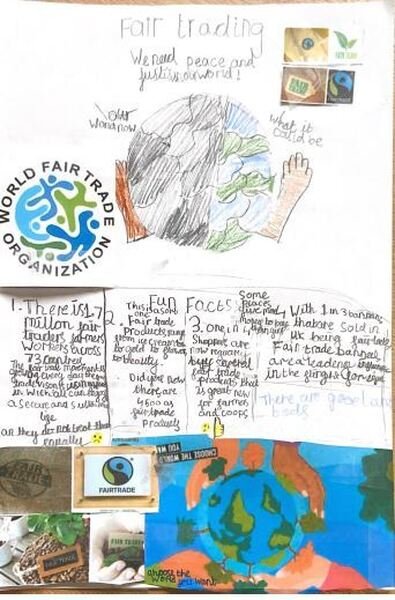 Fair trading
We need peace and
justis in our world!
FAIR TRADE
Our
World now
what it
could be
WORLD FAIR TRADE
ORGANIZATION
Fun Facts
1. There is 1.7
million fair
traders farmers
workers across
73 countrey
The fair trade movement is
growing every day the
a secure and
life
as they do not treat them
equally
2. This is
one
Fair trade
products range
from ice cream to
to gold to flower
to beauty.
Did you now
there are
1500 as
fair trade
products
3. one in
Shoppers are
now regulary
buying several
fair trade
products that
is great new
for farmers
and coops
Some
places
give more
money to pay
4. With 1 in 3 bananas
that are sold in
UK being fair trade
Fair trade bananas
are a leading
in the
There are good and
bads
FAIR TRADE
FAIRTRADE
CHOOSE THE WORLD
YOU WANT
FAIR TRADE
FAIR TRADE
choose the
world you want